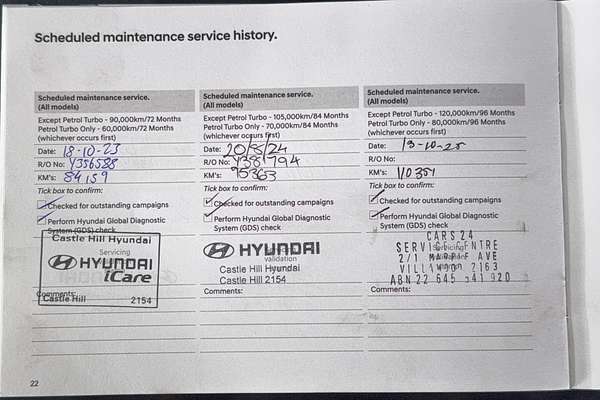 Scheduled maintenance service history.
Scheduled maintenance service.
(All models)
Except Petrol Turbo - 90,000km/72 Months
Petrol Turbo Only - 60,000km/72 Months
(whichever occurs first)
Date: 18-10-23
R/O No: Y356588
KM's: 84159
Tick box to confirm:
Checked for outstanding campaigns
Perform Hyundai Global Diagnostic
System (GDS) check
Castle Hill Hyundai
Servicing
HYUNDAI
iCare
Comments:
Castle Hill 2154
Scheduled maintenance service.
(All models)
Except Petrol Turbo - 105,000km/84 Months
Petrol Turbo Only - 70,000km/84 Months
(whichever occurs first)
Date: 20/8/24
R/O No: Y381794
KM's: 95363
Tick box to confirm:
Checked for outstanding campaigns
Perform Hyundai Global Diagnostic
System (GDS) check
HYUNDAI
validation
Castle Hill Hyundai
Castle Hill 2154
Comments:
Scheduled maintenance service.
(All models)
Except Petrol Turbo - 120,000km/96 Months
Petrol Turbo Only - 80,000km/96 Months
(whichever occurs first)
Date: 13-10-25
R/O No:
KM's: 110351
Tick box to confirm:
Checked for outstanding campaigns
Perform Hyundai Global Diagnostic
System (GDS) check
CARS24
SERVICE CENTRE
2/1 AVE
2163
ABN 22 645 541 920
Comments:
22